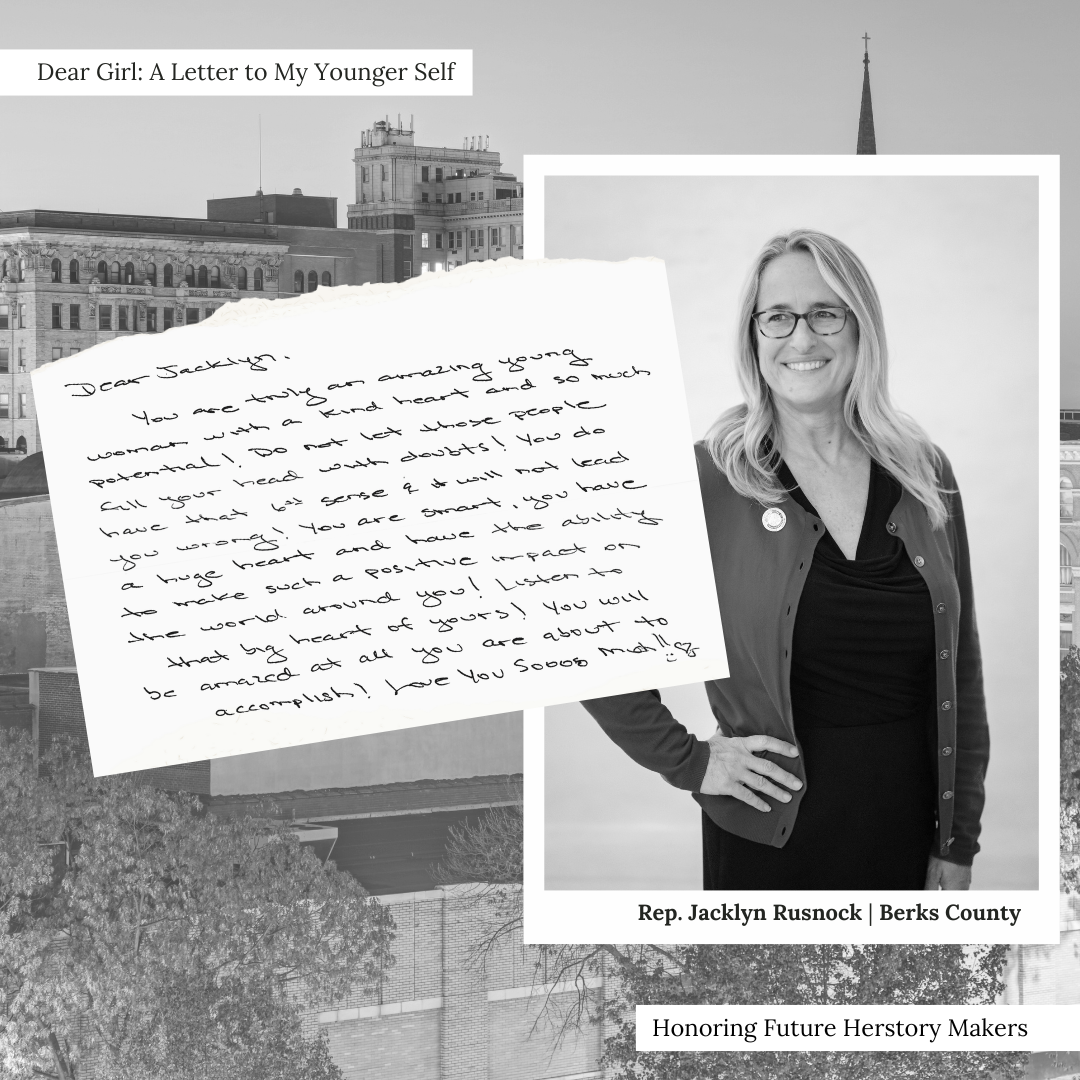 Dear Girl: A Letter to My Younger Self
Dear Jacklyn,
You are truly an amazing young
woman with a kind heart and so much
potential! Do not let those people
fill your head with doubts! You do
have that 6th sense & it will not lead
you wrong! You are smart, you have
a huge heart and have the ability
to make such a positive impact on
the world around you! Listen to
that big heart of yours! You will
be amazed at all you are about to
accomplish! Love You Soooo Much!!
Rep. Jacklyn Rusnock | Berks County
Honoring Future Herstory Makers